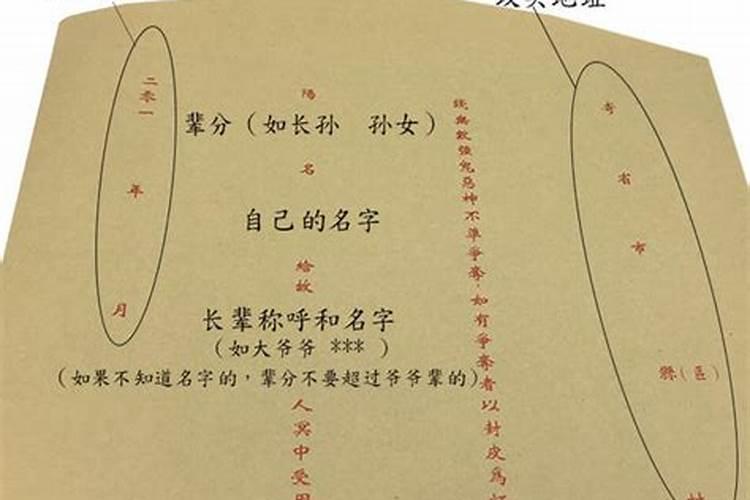 地址
寄省市縣(區)
孤魂強鬼惡神不準爭奪，如有爭奪者以封皮爲
陽
辈分（如长孙 孙女）
名
自己的名字
給故
长辈称呼和名字
（如大爷爷 *** ）
（如果不知道名字的，辈分不要超过爷爷辈的）
人冥中受用
二零一 年 月